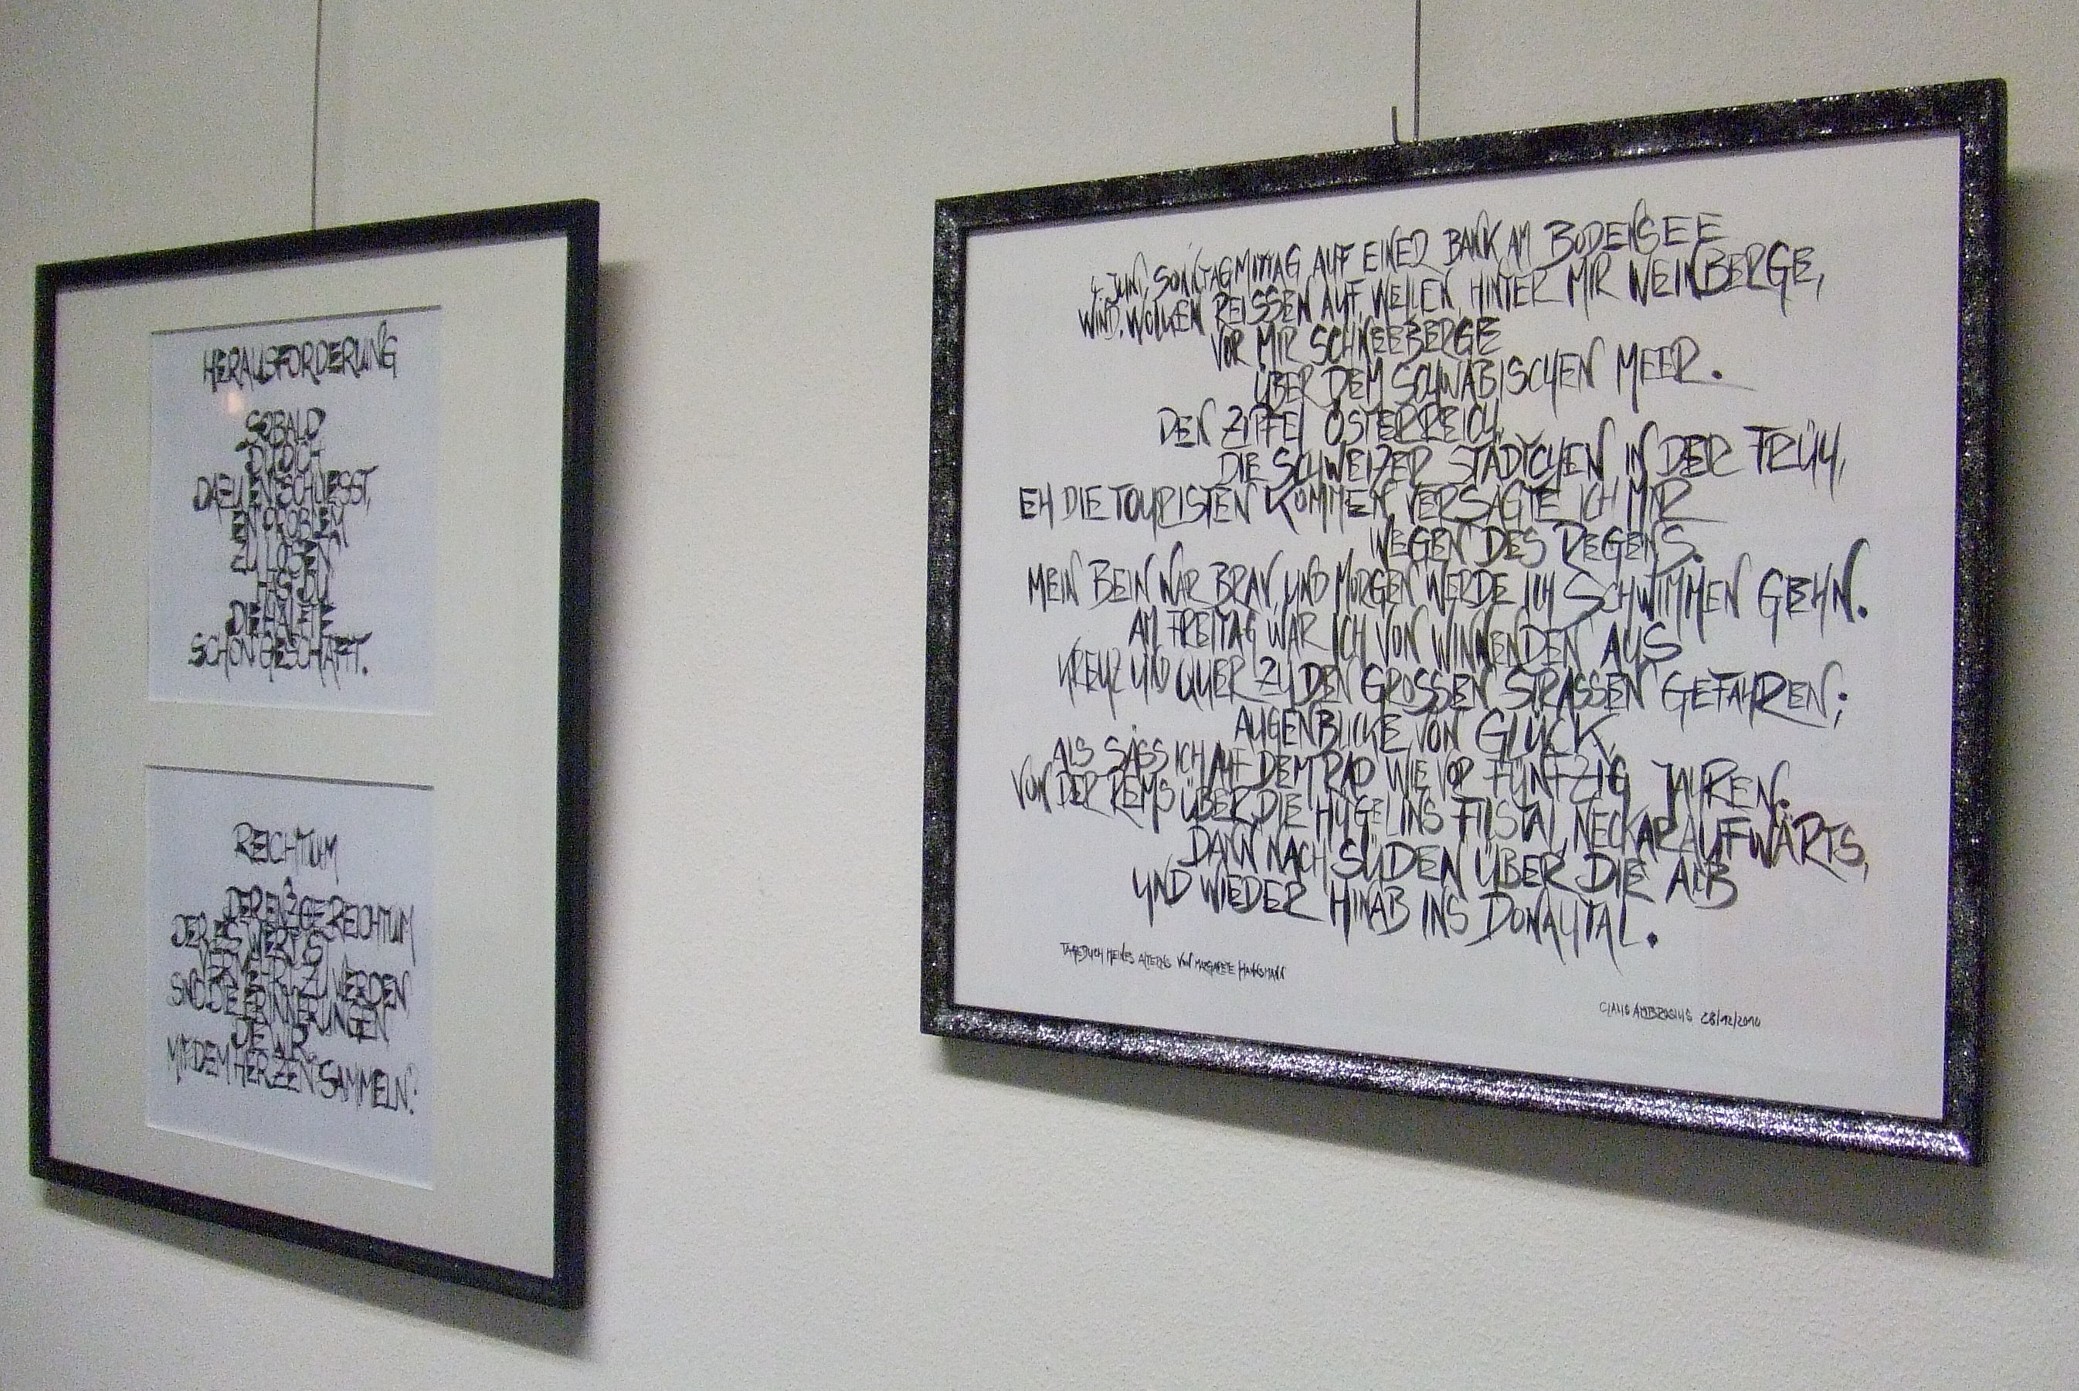 HERAUSFORDERUNG
SOBALD
DU DICH
DAZU ENTSCHLIESST,
EIN PROBLEM
ZU LÖSEN
HAST DU
DIE HÄLFTE
SCHON GESCHAFFT.
REICHTUM
DER EINZIGE REICHTUM
DER ES WERT IS
VERMEHRT ZU WERDEN
SIND DIE ERINNERUNGEN
DIE WIR
MIT DEM HERZEN SAMMELN.
4. JUNI, SONNTAGMITTAG AUF EINER BANK AM BODENSEE
WIND. WOLKEN REISSEN AUF, WELLEN, HINTER MIR WEINBERGE,
VOR MIR SCHNEEBERGE
ÜBER DEM SCHWÄBISCHEN MEER.
DEN ZIPFEL ÖSTERREICH,
DIE SCHWEIZER STÄDTCHEN IN DER FRÜH,
EH DIE TOURISTEN KOMMEN, VERSAGTE ICH MIR
WEGEN DES REGENS.
MEIN BEIN WAR BRAV, UND MORGEN WERDE ICH SCHWIMMEN GEHN.
AM FREITAG WAR ICH VON WINNENDEN AUS
KREUZ UND QUER ZU DEN GROSSEN STRASSEN GEFAHREN;
AUGENBLICKE VON GLÜCK,
ALS SÄSS ICH AUF DEM RAD WIE VOR FÜNFZIG JAHREN.
VON DER REMS ÜBER DIE HÜGEL INS FILSTAL, NECKARAUFWÄRTS,
DANN NACH SÜDEN ÜBER DIE ALB
UND WIEDER HINAB INS DONAUTAL.
TAGEBUCH MEINES ALTERNS VON MARGARETE HANNSMANN
CLAUS AMBROSIUS 28/12/2010